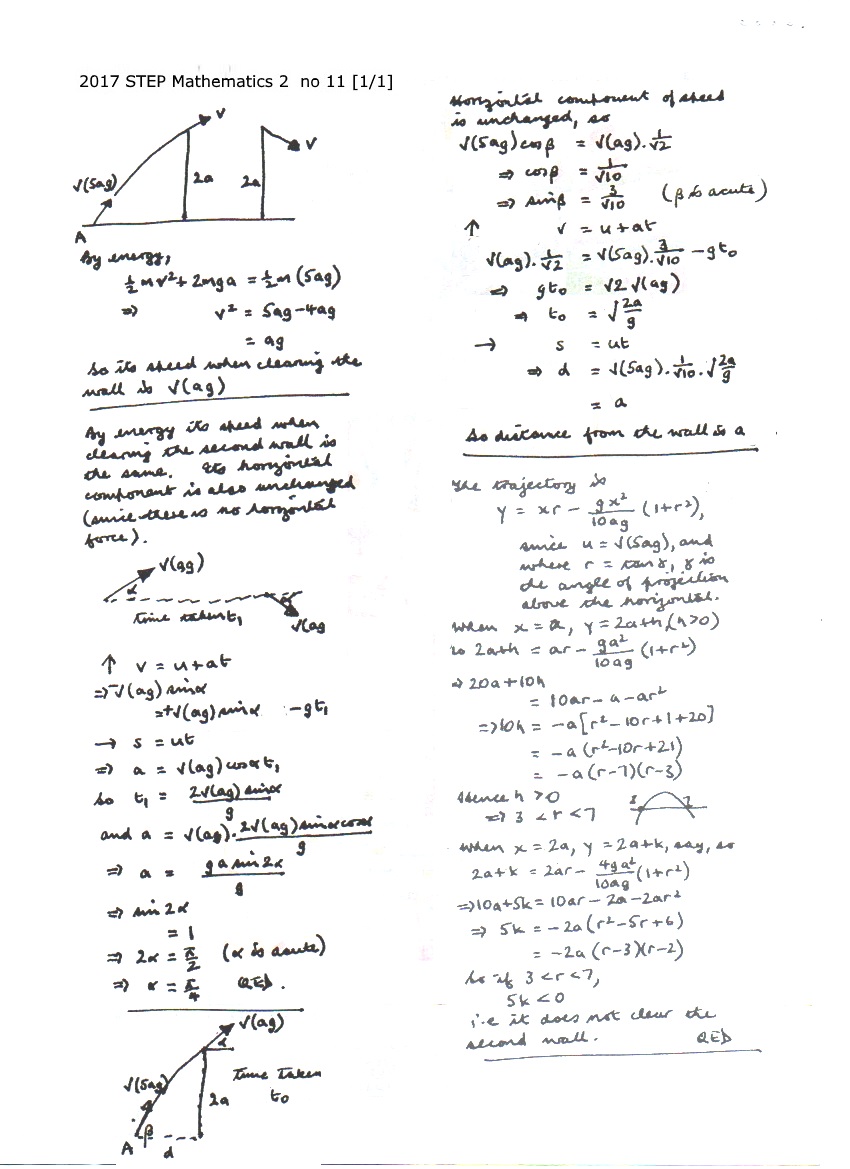 2017 STEP Mathematics 2 no 11 [1/1]
v
v
√(5ag)
2a
2a
A
By energy,
½mv² + 2mga = ½m(5ag)
⇒ v² = 5ag-4ag
= ag
So its speed when clearing the
wall is √(ag)
By energy its speed when
clearing the second wall is
the same. Its horizontal
component is also unchanged
(since there is no horizontal
force).
√(ag)
α
time taken t₁
√(ag
↑ v = u+at
⇒ -√(ag) sinα
= +√(ag) sinα - gt₁
→ s = ut
⇒ a = √(ag) cosα t₁
So t₁ = 2√(ag) sinα / g
and a = √(ag) · 2√(ag) sinα cosα / g
⇒ a = ga sin 2α / g
⇒ sin 2α
= 1
⇒ 2α = π/2 (α is acute)
⇒ α = π/4 QED.
√(ag)
α
√(5ag)
time taken
t₀
2a
β
A
d
Horizontal component of speed
is unchanged, so
√(5ag) cosβ = √(ag) · 1/√2
⇒ cosβ = 1/√10
⇒ sinβ = 3/√10 (β is acute)
↑ v = u+at
√(ag) · 1/√2 = √(5ag) · 3/√10 - gt₀
⇒ gt₀ = √2 √(ag)
⇒ t₀ = √(2a/g)
→ s = ut
⇒ d = √(5ag) · 1/√10 · √(2a/g)
= a
So distance from the wall is a
The trajectory is
y = xr - gx²/10ag (1+r²),
since u = √(5ag), and
where r = tan γ, γ is
the angle of projection
above the horizontal.
When x = a, y = 2a+h, (h>0)
so 2a+h = ar - ga²/10ag (1+r²)
⇒ 20a+10h
= 10ar - a - ar²
⇒ 10h = -a[r² - 10r + 1 + 20]
= -a (r²-10r+21)
= -a (r-7)(r-3)
Hence h > 0
⇒ 3 < r < 7
3
7
When x = 2a, y = 2a+k, say, so
2a+k = 2ar - 4ga²/10ag (1+r²)
⇒ 10a+5k = 10ar - 2a - 2ar²
⇒ 5k = -2a (r²-5r+6)
= -2a (r-3)(r-2)
So if 3 < r < 7,
5k < 0
i.e it does not clear the
second wall. QED